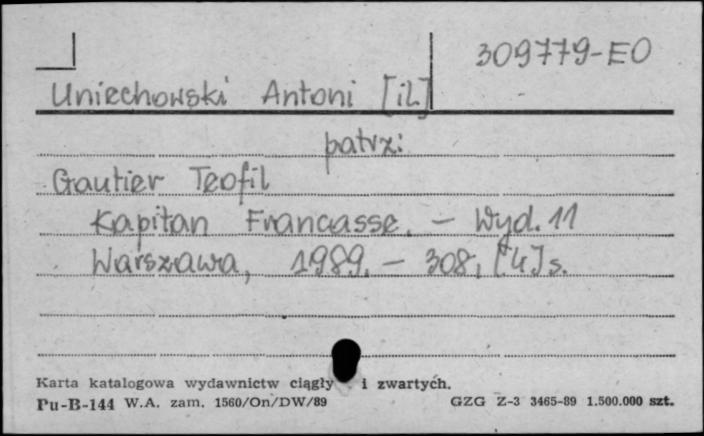 309779-EO
Uniechowski Antoni [il.]
patrz:
Gautier Teofil
Kapitan Fracasse. - Wyd. 11
Warszawa, 1989. - 308, [4] s.
Karta katalogowa wydawnictw ciągły i zwartych.
Pu-B-144 W.A. zam. 1560/On/DW/89 GZG Z-3 3465-89 1.500.000 szt.